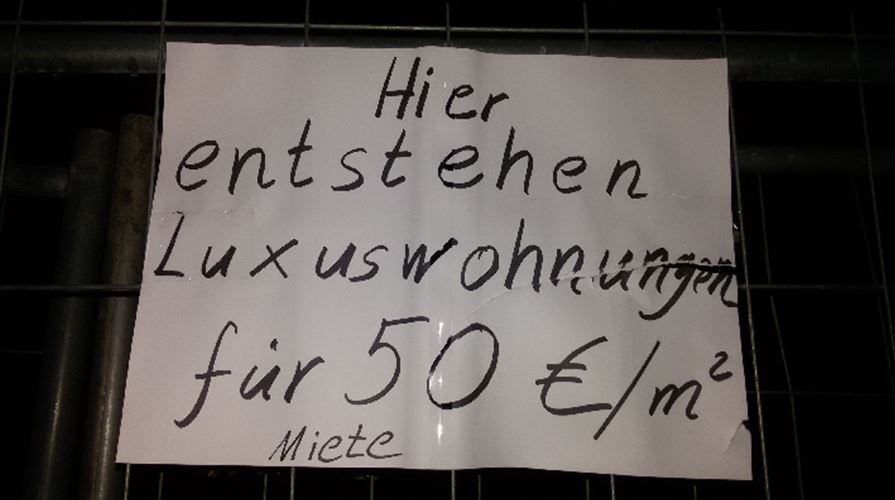 Hier
entstehen
Luxuswohnungen
für 50 €/m²
Miete